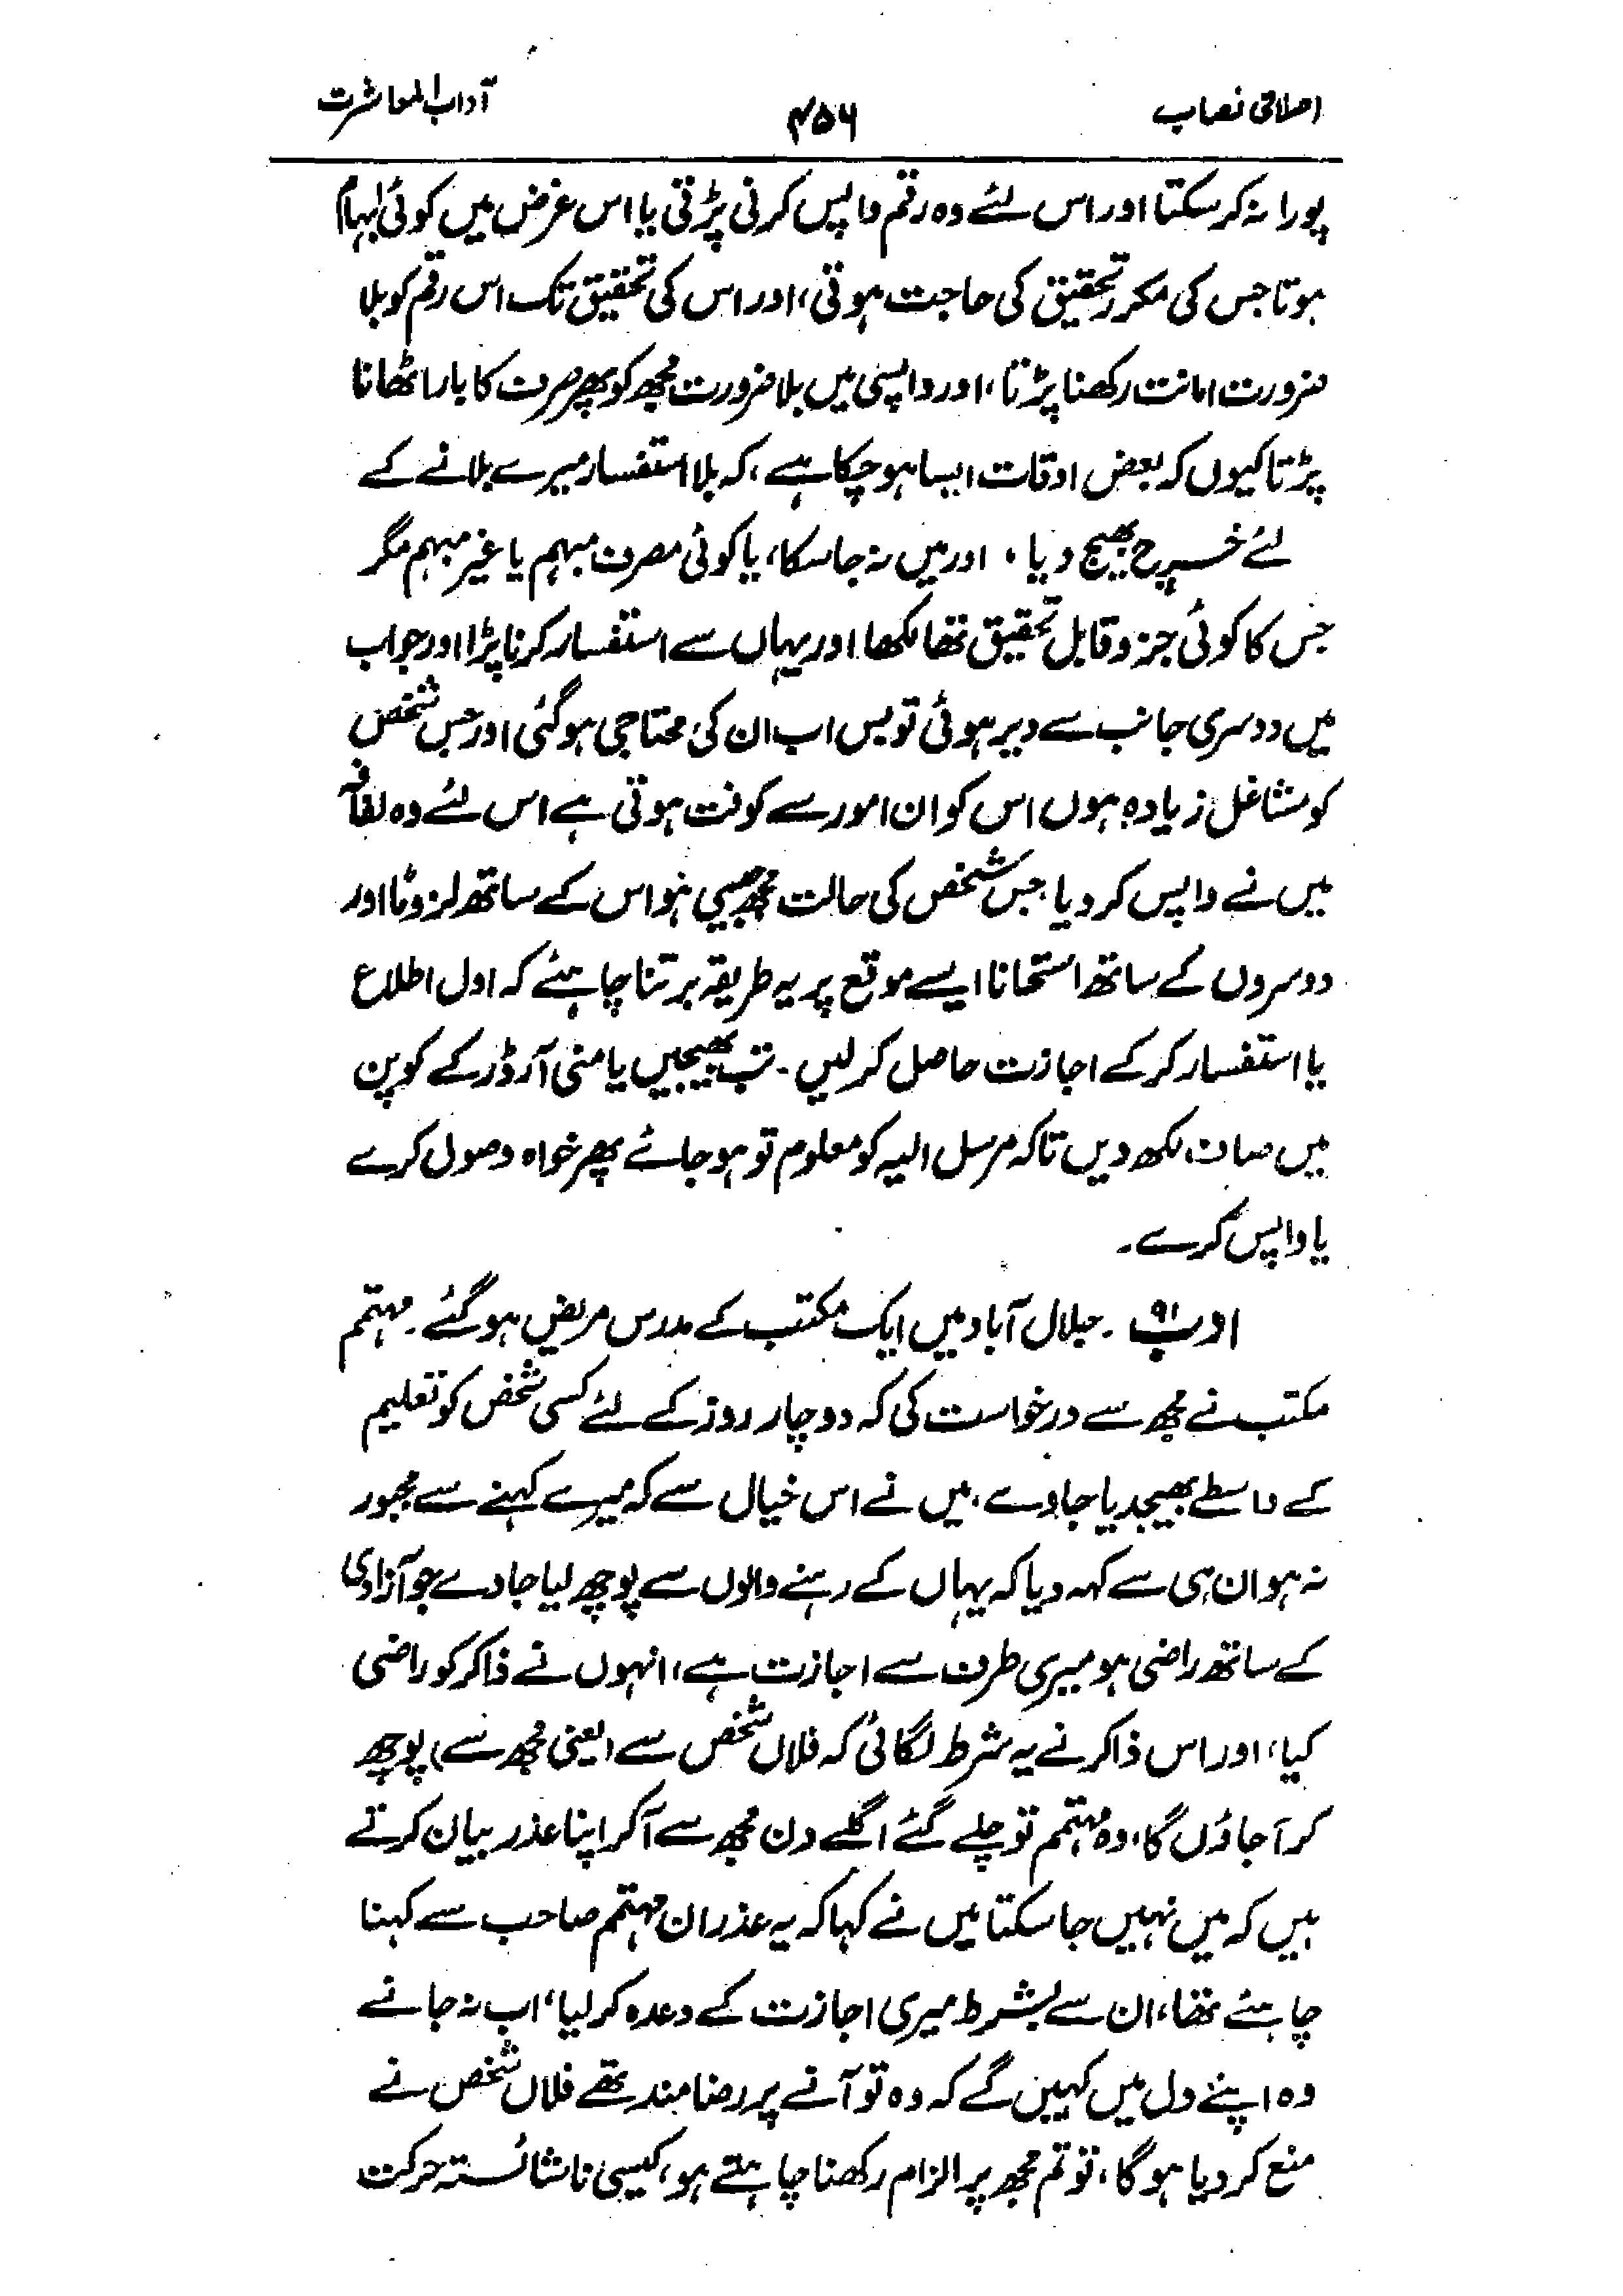 اصلاحی نصاب
۴۵۶
آداب المعاشرت
پورا نہ کر سکتا اور اس لئے وہ رقم واپس کرنی پڑتی یا اس غرض میں کوئی ابہام
ہوتا جس کی مکرر تحقیق کی حاجت ہوتی، اور اس کی تحقیق تک اس رقم کو بلا
ضرورت امانت رکھنا پڑتا، اور واپسی میں بلا ضرورت مجھ کو پھر صرف کا بار اٹھانا
پڑتا کیوں کہ بعض اوقات ایسا ہو چکا ہے، کہ بلا استفسار میرے بلانے کے
لئے خرچ بھیج دیا، اور میں نہ جا سکا، یا کوئی مصرف مبہم یا غیر مبہم مگر
جس کا کوئی جزو قابل تحقیق تھا لکھا اور یہاں سے استفسار کرنا پڑا اور جواب
میں دوسری جانب سے دیر ہوئی تو بس اب ان کی محتاجی ہو گئی اور جس شخص
کو مشاغل زیادہ ہوں اس کو ان امور سے کوفت ہوتی ہے اس لئے وہ لفافہ
میں نے واپس کر دیا جس شخص کی حالت مجھ جیسی ہو اس کے ساتھ لزوماً اور
دوسروں کے ساتھ استحاناً ایسے موقع پر یہ طریقہ برتنا چاہئے کہ اول اطلاع
یا استفسار کر کے اجازت حاصل کر لیں۔ تب بھیجیں یا منی آرڈر کے کوپن
میں صاف لکھ دیں تاکہ مرسل الیہ کو معلوم تو ہو جائے پھر خواہ وصول کرے
یا واپس کرے۔
ادب ۹۱۔ جلال آباد میں ایک مکتب کے مدرس مریض ہو گئے۔ مہتمم
مکتب نے مجھ سے درخواست کی کہ دو چار روز کے لئے کسی شخص کو تعلیم
کے واسطے بھیجدیا جاوے، میں نے اس خیال سے کہ میرے کہنے سے مجبور
نہ ہو ان ہی سے کہہ دیا کہ یہاں کے رہنے والوں سے پوچھ لیا جاوے جو آزادی
کے ساتھ راضی ہو میری طرف سے اجازت ہے، انہوں نے ذاکر کو راضی
کیا، اور اس ذاکر نے یہ شرط لگائی کہ فلاں شخص سے (یعنی مجھ سے) پوچھ
کر آ جاؤں گا، وہ مہتمم تو چلے گئے اگلے دن مجھ سے آ کر اپنا عذر بیان کرتے
ہیں کہ میں نہیں جا سکتا میں نے کہا کہ یہ عذر ان مہتمم صاحب سے کہنا
چاہئے تھا، ان سے بشرط میری اجازت کے وعدہ کر لیا، اب نہ جانے
وہ اپنے دل میں کہیں گے کہ وہ تو آنے پر رضا مند تھے فلاں شخص نے
منع کر دیا ہو گا، تو تم مجھ پر الزام رکھنا چاہتے ہو، کیسی ناشائستہ حرکت